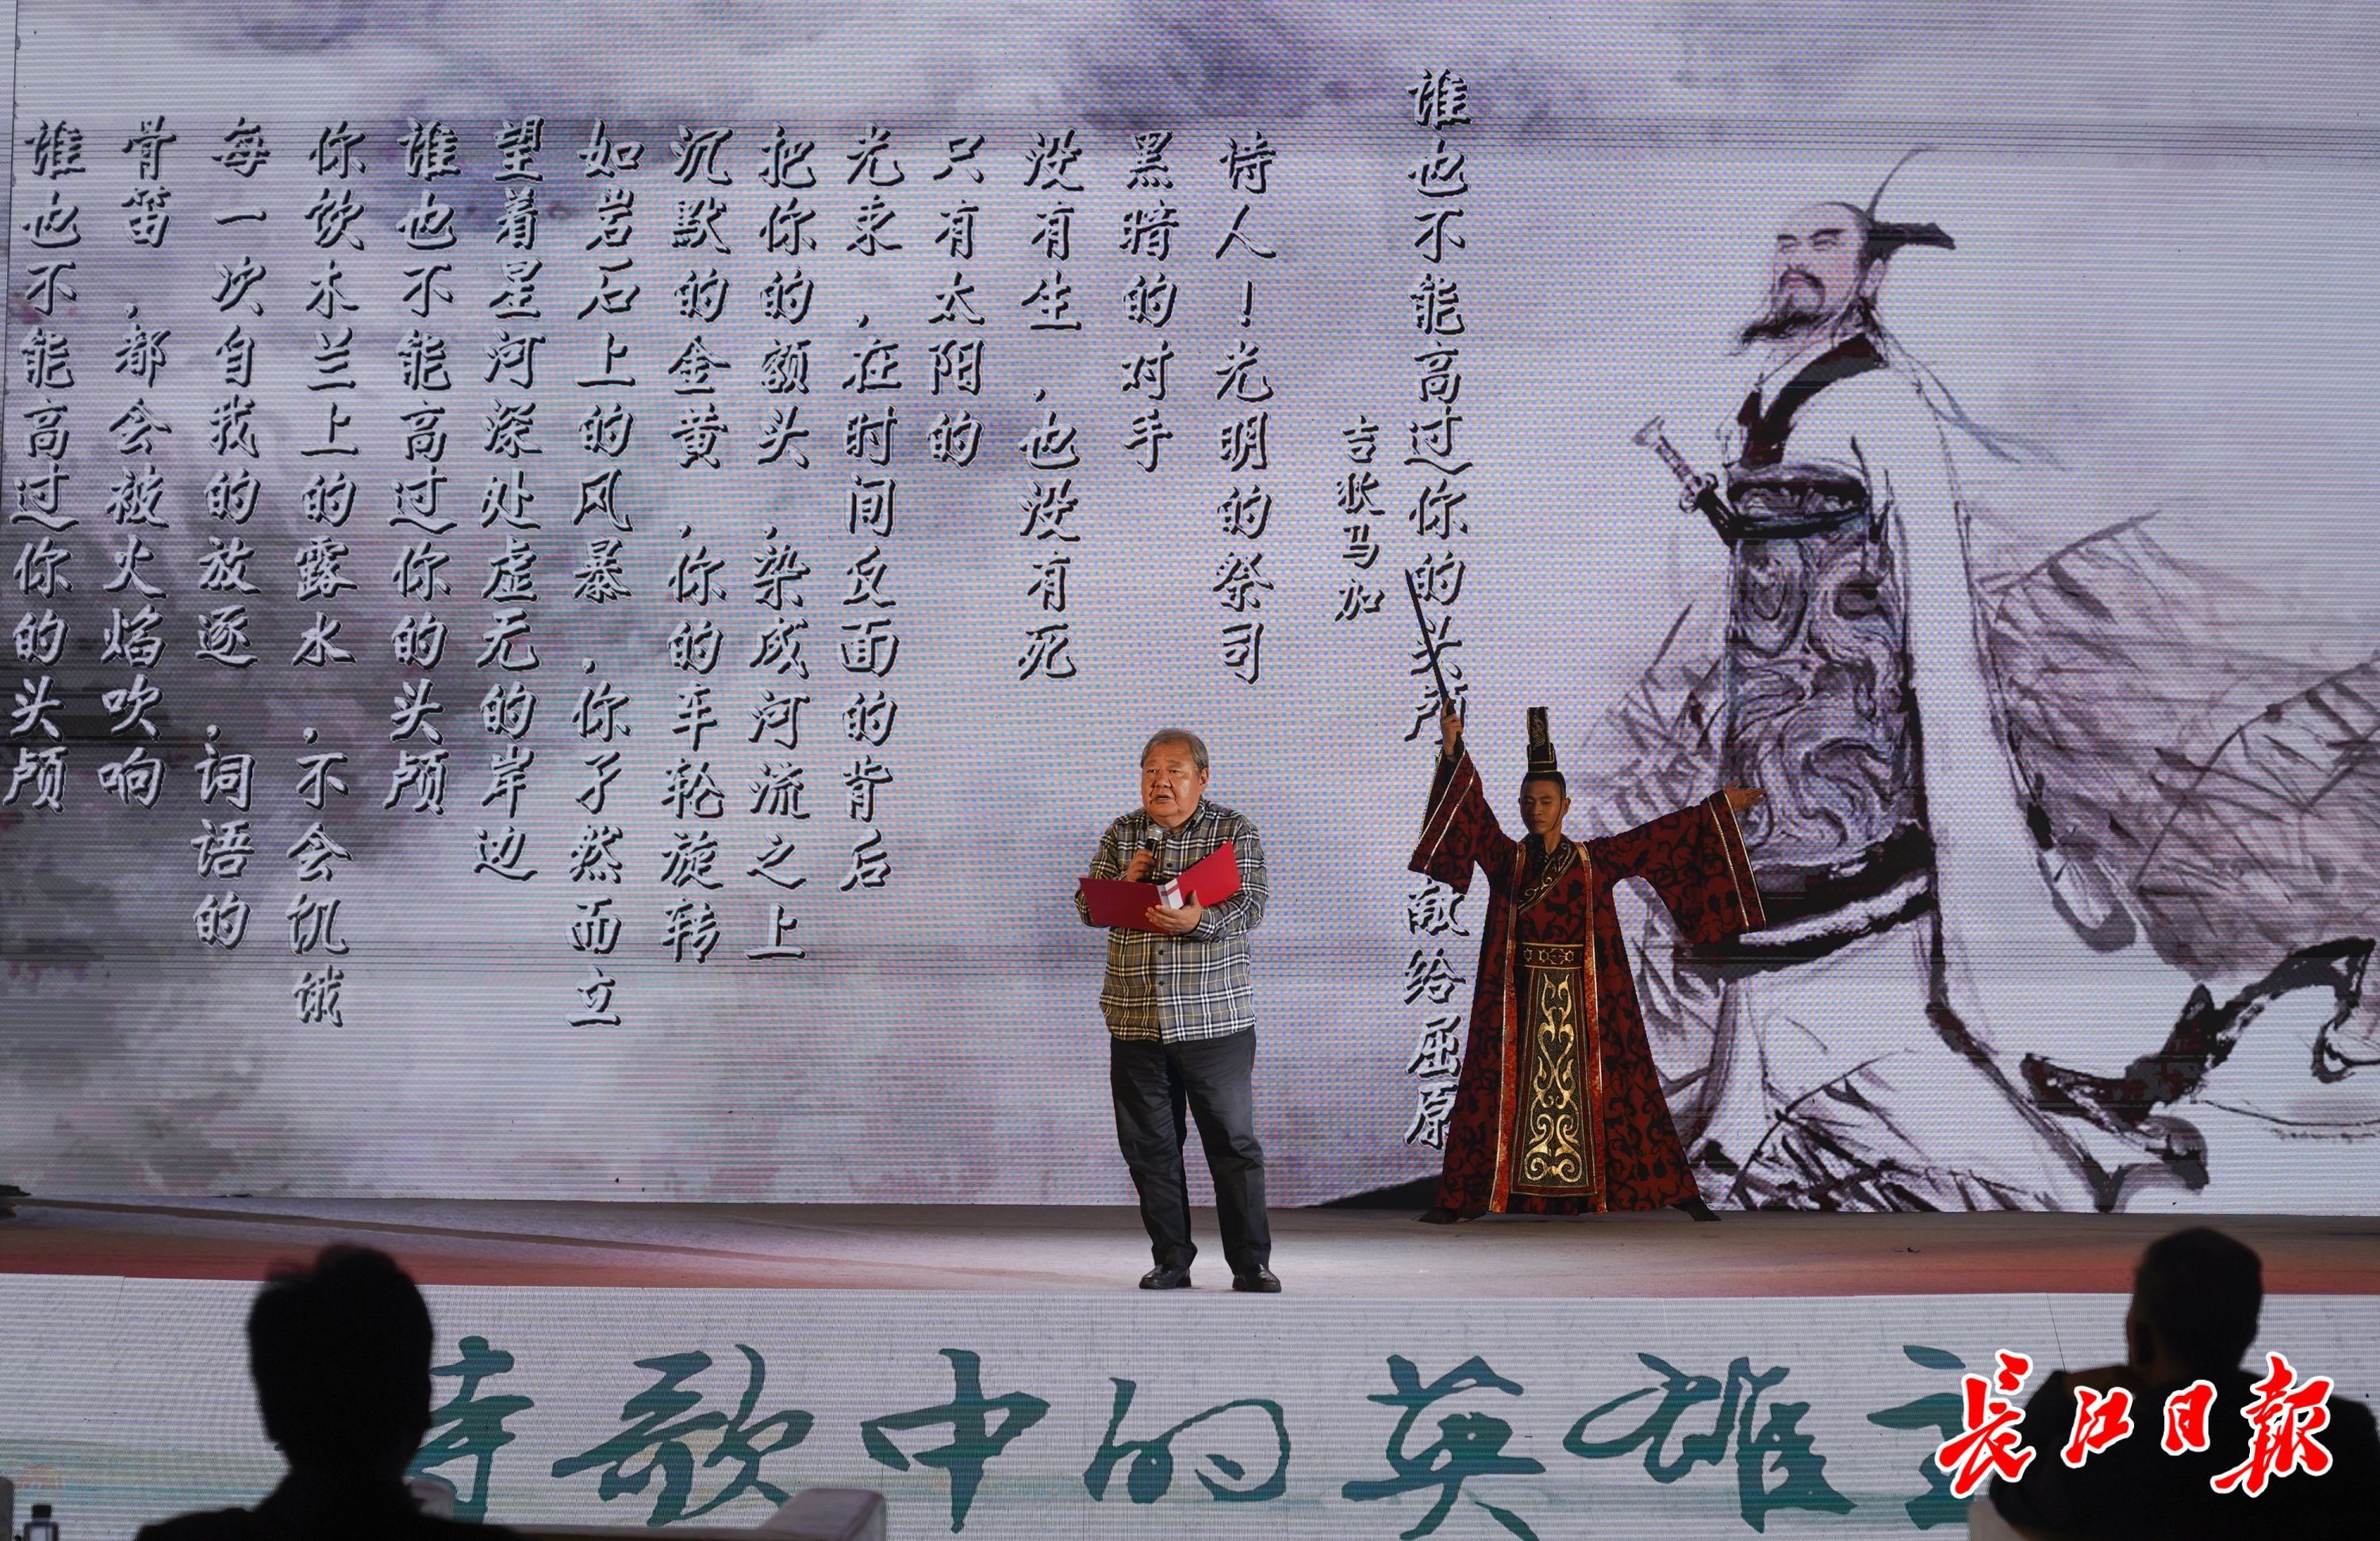 谁也不能高过你的头颅 献给屈原
吉狄马加
诗人！光明的祭司
黑暗的对手
没有生，也没有死
只有太阳的
光束，在时间反面的背后
把你的额头，染成河流之上
沉默的金黄，你的车轮旋转
如岩石上的风暴，你孑然而立
望着星河深处虚无的岸边
谁也不能高过你的头颅
你饮木兰上的露水，不会饥饿
每一次自我的放逐，词语的
骨笛，都会被火焰吹响
谁也不能高过你的头颅
诗歌中的英雄
长江日报